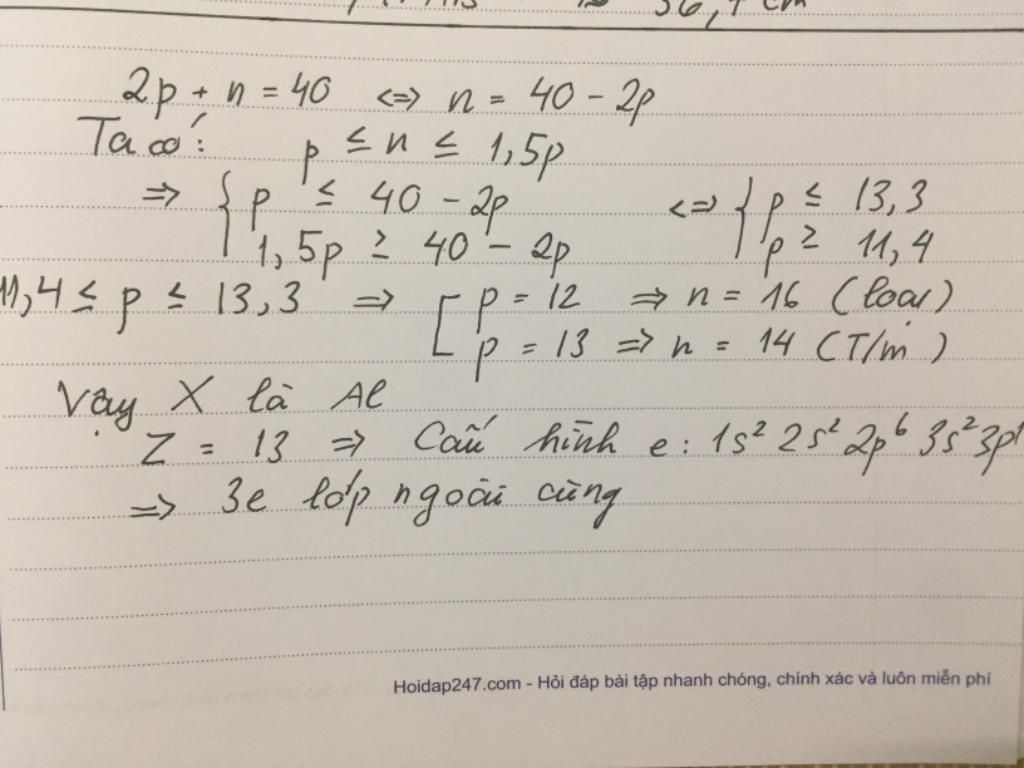 36,4 cm
2p + n = 40 <=> n = 40 - 2p
Ta có: p ≤ n ≤ 1,5p
=> { p ≤ 40 - 2p <=> { p ≤ 13,3
1,5p ≥ 40 - 2p p ≥ 11,4
11,4 ≤ p ≤ 13,3 => [ p = 12 => n = 16 (loại)
p = 13 => n = 14 (T/m)
Vậy X là Al
Z = 13 => Cấu hình e: 1s² 2s² 2p⁶ 3s² 3p¹
=> 3e lớp ngoài cùng
Hoidap247.com - Hỏi đáp bài tập nhanh chóng, chính xác và luôn miễn phí